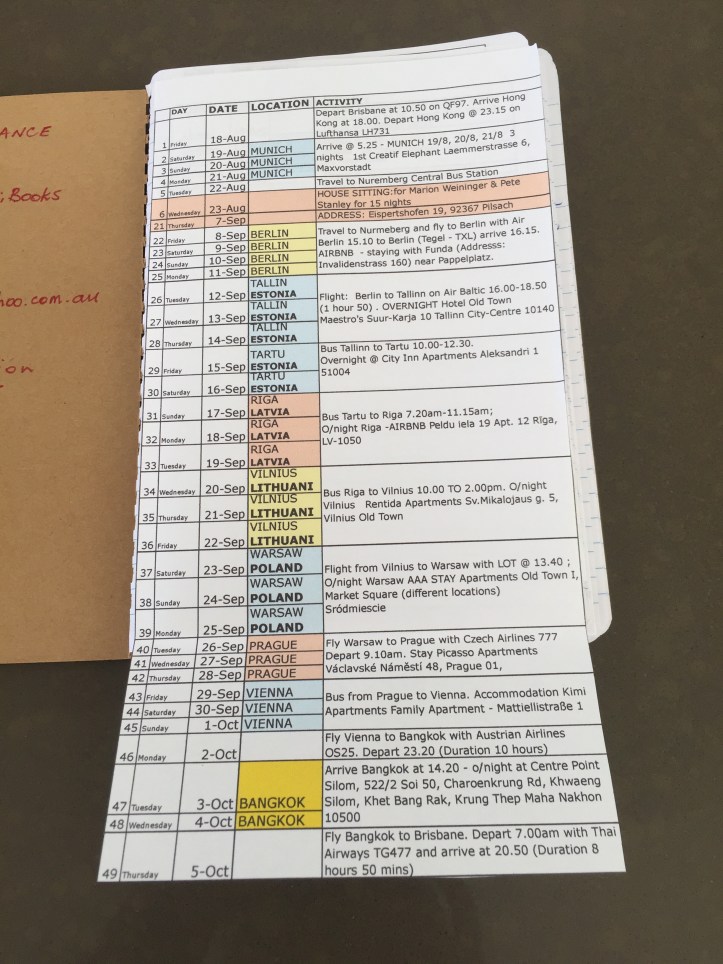 ANCE
; Books
hoo.com.au
ion
DAY DATE LOCATION ACTIVITY
1 Friday 18-Aug Depart Brisbane at 10.50 on QF97. Arrive Hong
Kong at 18.00. Depart Hong Kong @ 23.15 on
Lufthansa LH731
2 Saturday 19-Aug MUNICH Arrive @ 5.25 - MUNICH 19/8, 20/8, 21/8 3
3 Sunday 20-Aug MUNICH nights 1st Creatif Elephant Laemmerstrasse 6,
4 Monday 21-Aug MUNICH Maxvorstadt
5 Tuesday 22-Aug Travel to Nuremberg Central Bus Station
6 Wednesday 23-Aug HOUSE SITTING:for Marion Weininger & Pete
Stanley for 15 nights
21 Thursday 7-Sep ADDRESS: Eispertshofen 19, 92367 Pilsach
22 Friday 8-Sep BERLIN Travel to Nurmeberg and fly to Berlin with Air
23 Saturday 9-Sep BERLIN Berlin 15.10 to Berlin (Tegel - TXL) arrive 16.15.
24 Sunday 10-Sep BERLIN AIRBNB - staying with Funda (Addresss:
25 Monday 11-Sep BERLIN Invalidenstrass 160) near Pappelplatz.
26 Tuesday 12-Sep TALLIN ESTONIA Flight: Berlin to Tallinn on Air Baltic 16.00-18.50
27 Wednesday 13-Sep TALLIN ESTONIA (1 hour 50) . OVERNIGHT Hotel Old Town
28 Thursday 14-Sep TALLIN ESTONIA Maestro's Suur-Karja 10 Tallinn City-Centre 10140
29 Friday 15-Sep TARTU ESTONIA Bus Tallinn to Tartu 10.00-12.30.
30 Saturday 16-Sep TARTU ESTONIA Overnight @ City Inn Apartments Aleksandri 1
51004
31 Sunday 17-Sep RIGA LATVIA Bus Tartu to Riga 7.20am-11.15am;
32 Monday 18-Sep RIGA LATVIA O/night Riga -AIRBNB Peldu iela 19 Apt. 12 Rīga,
33 Tuesday 19-Sep RIGA LATVIA LV-1050
34 Wednesday 20-Sep VILNIUS LITHUANI Bus Riga to Vilnius 10.00 TO 2.00pm. O/night
35 Thursday 21-Sep VILNIUS LITHUANI Vilnius Rentida Apartments Sv.Mikalojaus g. 5,
36 Friday 22-Sep VILNIUS LITHUANI Vilnius Old Town
37 Saturday 23-Sep WARSAW POLAND Flight from Vilnius to Warsaw with LOT @ 13.40 ;
38 Sunday 24-Sep WARSAW POLAND O/night Warsaw AAA STAY Apartments Old Town I,
39 Monday 25-Sep WARSAW POLAND Market Square (different locations)
Sródmiescie
40 Tuesday 26-Sep PRAGUE Fly Warsaw to Prague with Czech Airlines 777
41 Wednesday 27-Sep PRAGUE Depart 9.10am. Stay Picasso Apartments
42 Thursday 28-Sep PRAGUE Václavské Náměstí 48, Prague 01,
43 Friday 29-Sep VIENNA Bus from Prague to Vienna. Accommodation Kimi
44 Saturday 30-Sep VIENNA Apartments Family Apartment - Mattiellistraße 1
45 Sunday 1-Oct VIENNA
46 Monday 2-Oct Fly Vienna to Bangkok with Austrian Airlines
OS25. Depart 23.20 (Duration 10 hours)
47 Tuesday 3-Oct BANGKOK Arrive Bangkok at 14.20 - o/night at Centre Point
Silom, 522/2 Soi 50, Charoenkrung Rd, Khwaeng
Silom, Khet Bang Rak, Krung Thep Maha Nakhon
48 Wednesday 4-Oct BANGKOK 10500
49 Thursday 5-Oct Fly Bangkok to Brisbane. Depart 7.00am with Thai
Airways TG477 and arrive at 20.50 (Duration 8
hours 50 mins)